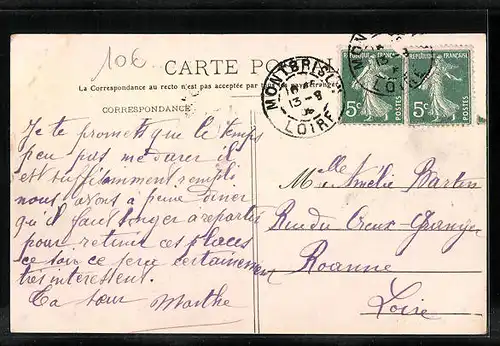 106
CARTE POSTALE
La Correspondance au recto n'est pas acceptée par
CORRESPONDANCE
MONTBRISON
13 - 8
LOIRE
REPUBLIQUE FRANÇAISE
5c POSTES
REPUBLIQUE FRANÇAISE
5c POSTES
LOIRE
Je te promets que le temps
peu pas me durer il
est suffisamment rempli
nous avons a peine diner
qu'il faut songer a repartir
pour retenir ces places
ce soir ce sera certainement
très interessent.
Ta sœur Marthe
Melle Amélie Bartin
Rue du Creux-Granger
Roanne
Loire